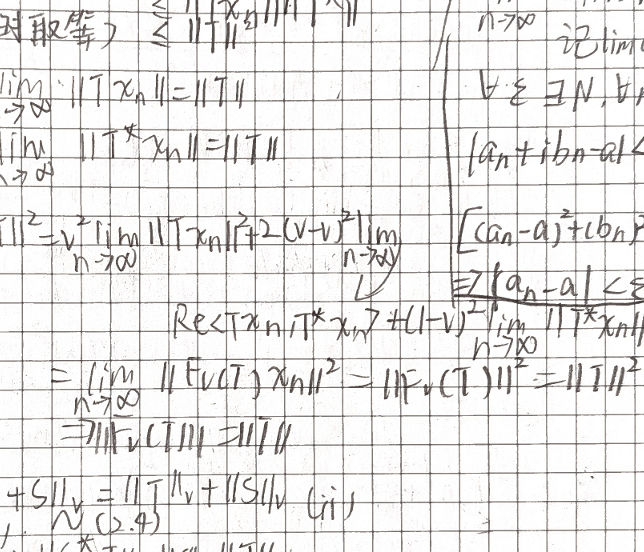 ≤ ||x_n|| ||T||
时取等) ≤ ||T||²
lim_{n→∞} ||Tx_n|| = ||T||
lim_{n→∞} ||T*x_n|| = ||T||
T||² = v² lim_{n→∞} ||Tx_n||² + 2(v-v)² lim_{n→∞}
Re<Tx_n, T*x_n> + (1-v)² lim_{n→∞} ||T*x_n||
= lim_{n→∞} ||F_v(T)x_n||² = ||F_v(T)||² = ||T||²
⇒ ||F_v(T)|| = ||T||
+S||_v = ||T||_v + ||S||_v (ii)
(2.4)
n→∞
记lim
∀ε ∃N, ∀n
|a_n+ib_n-a| <
[(a_n-a)²+(b_n)²
⇒ |a_n-a| < ε